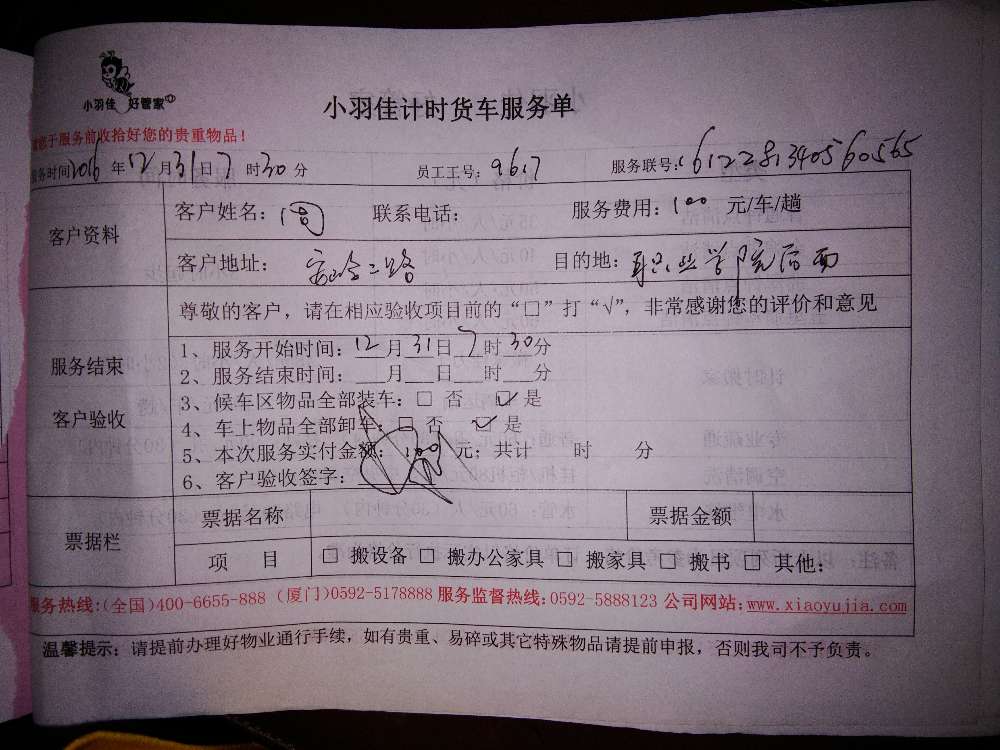 小羽佳 好管家
小羽佳计时货车服务单
于服务前收拾好您的贵重物品！
服务时间2016年12月31日7时30分 员工工号：9617 服务联号：161228134056 0565
客户资料
客户姓名：周 联系电话： 服务费用：100 元/车/趟
客户地址：二路 目的地：职业学院后面
尊敬的客户，请在相应验收项目前的“□”打“√”，非常感谢您的评价和意见
服务结束
客户验收
1、服务开始时间：12月31日7时30分
2、服务结束时间：___月___日___时___分
3、候车区物品全部装车：□ 否 ☑ 是
4、车上物品全部卸车：□ 否 ☑ 是
5、本次服务实付金额：100元；共计 时 分
6、客户验收签字：
票据栏
票据名称 票据金额
项 目 □ 搬设备 □ 搬办公家具 □ 搬家具 □ 搬书 □ 其他：
服务热线：(全国)400-6655-888 (厦门)0592-5178888 服务监督热线：0592-5888123 公司网站：www.xiaoyujia.com
温馨提示：请提前办理好物业通行手续，如有贵重、易碎或其它特殊物品请提前申报，否则我司不予负责。